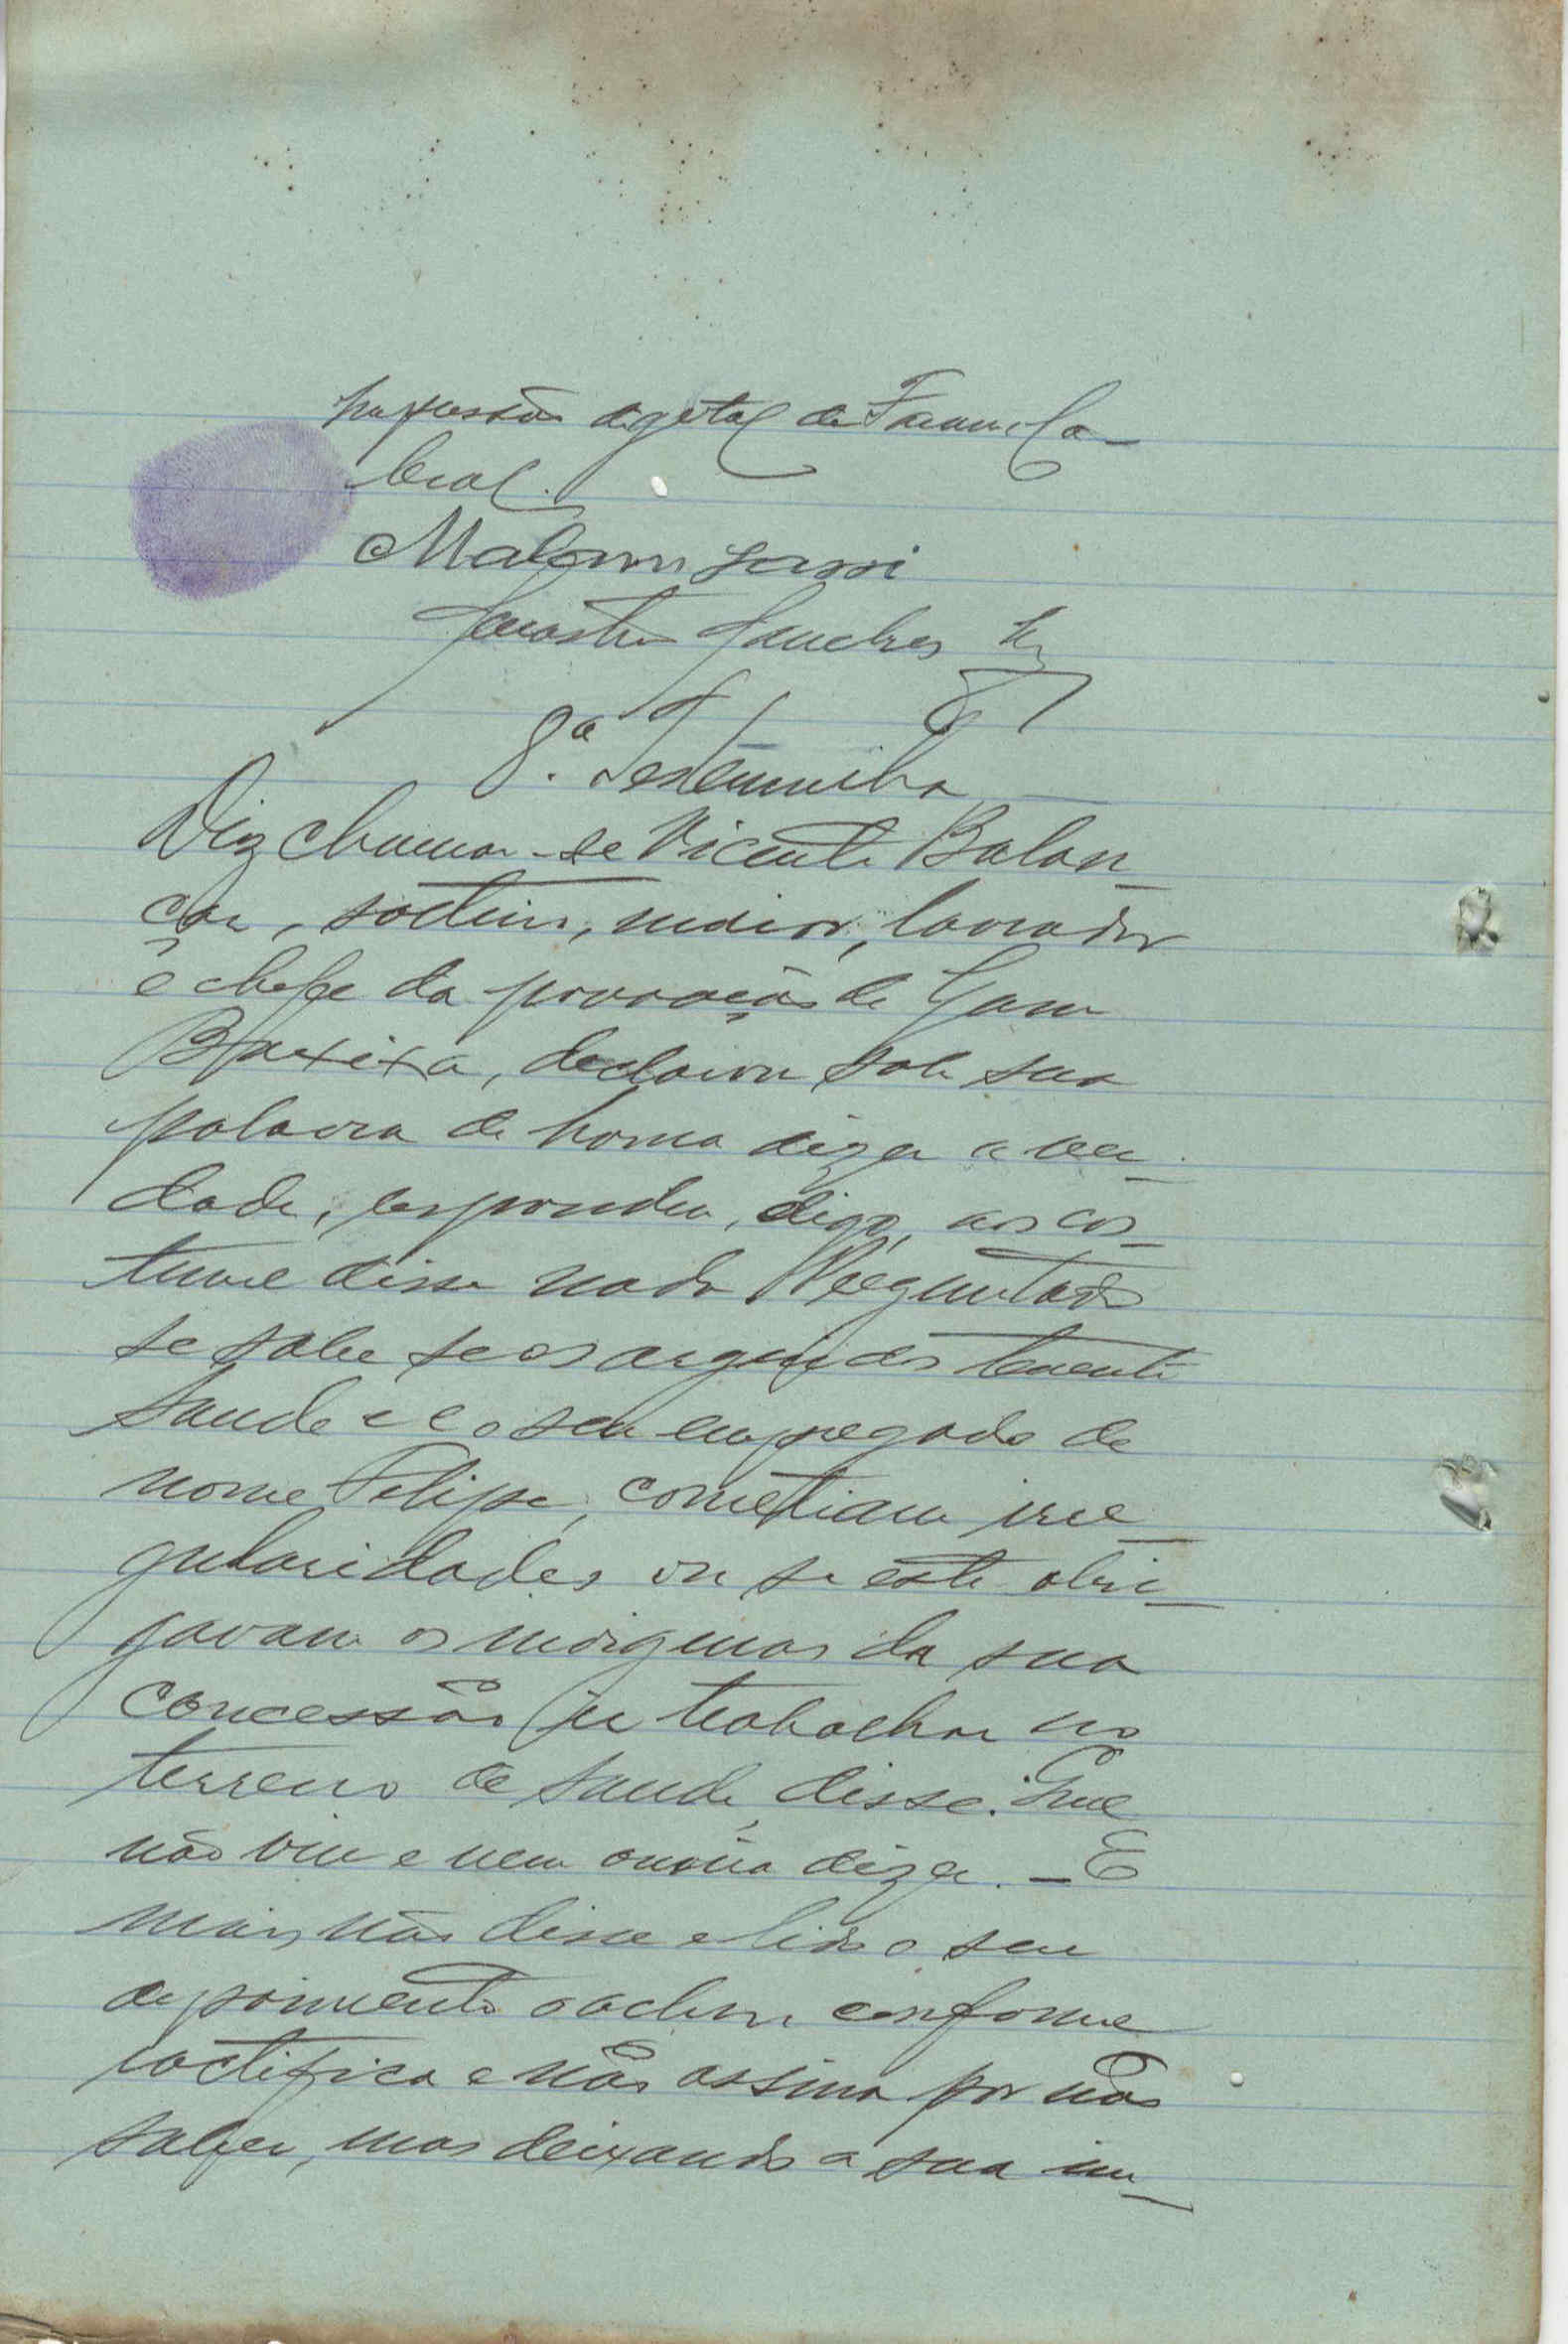 impressão digital de
bral.
8.ª Testemunha
Diz chamar-se Vicente Balan-
ça, solteiro, maior, lavrador
e chefe da povoação de Gam
declarou sob sua
palavra de honra dizer a ver-
dade, respondeu, digo, aos cos-
tume disse nada Perguntado
se sabe se os arguidos tenente
Saude e o seu empregado de
nome Felipe, cometiam irre-
gularidades ou se este obri-
gavam os indigenas da sua
concessão ir trabalhar no
terreno de Saude, disse: Que
não viu e nem ouviu dizer. — E
mais não disse e lido o seu
depoimento o achou conforme
ractifica e não assina por não
saber, mas deixando a sua im-